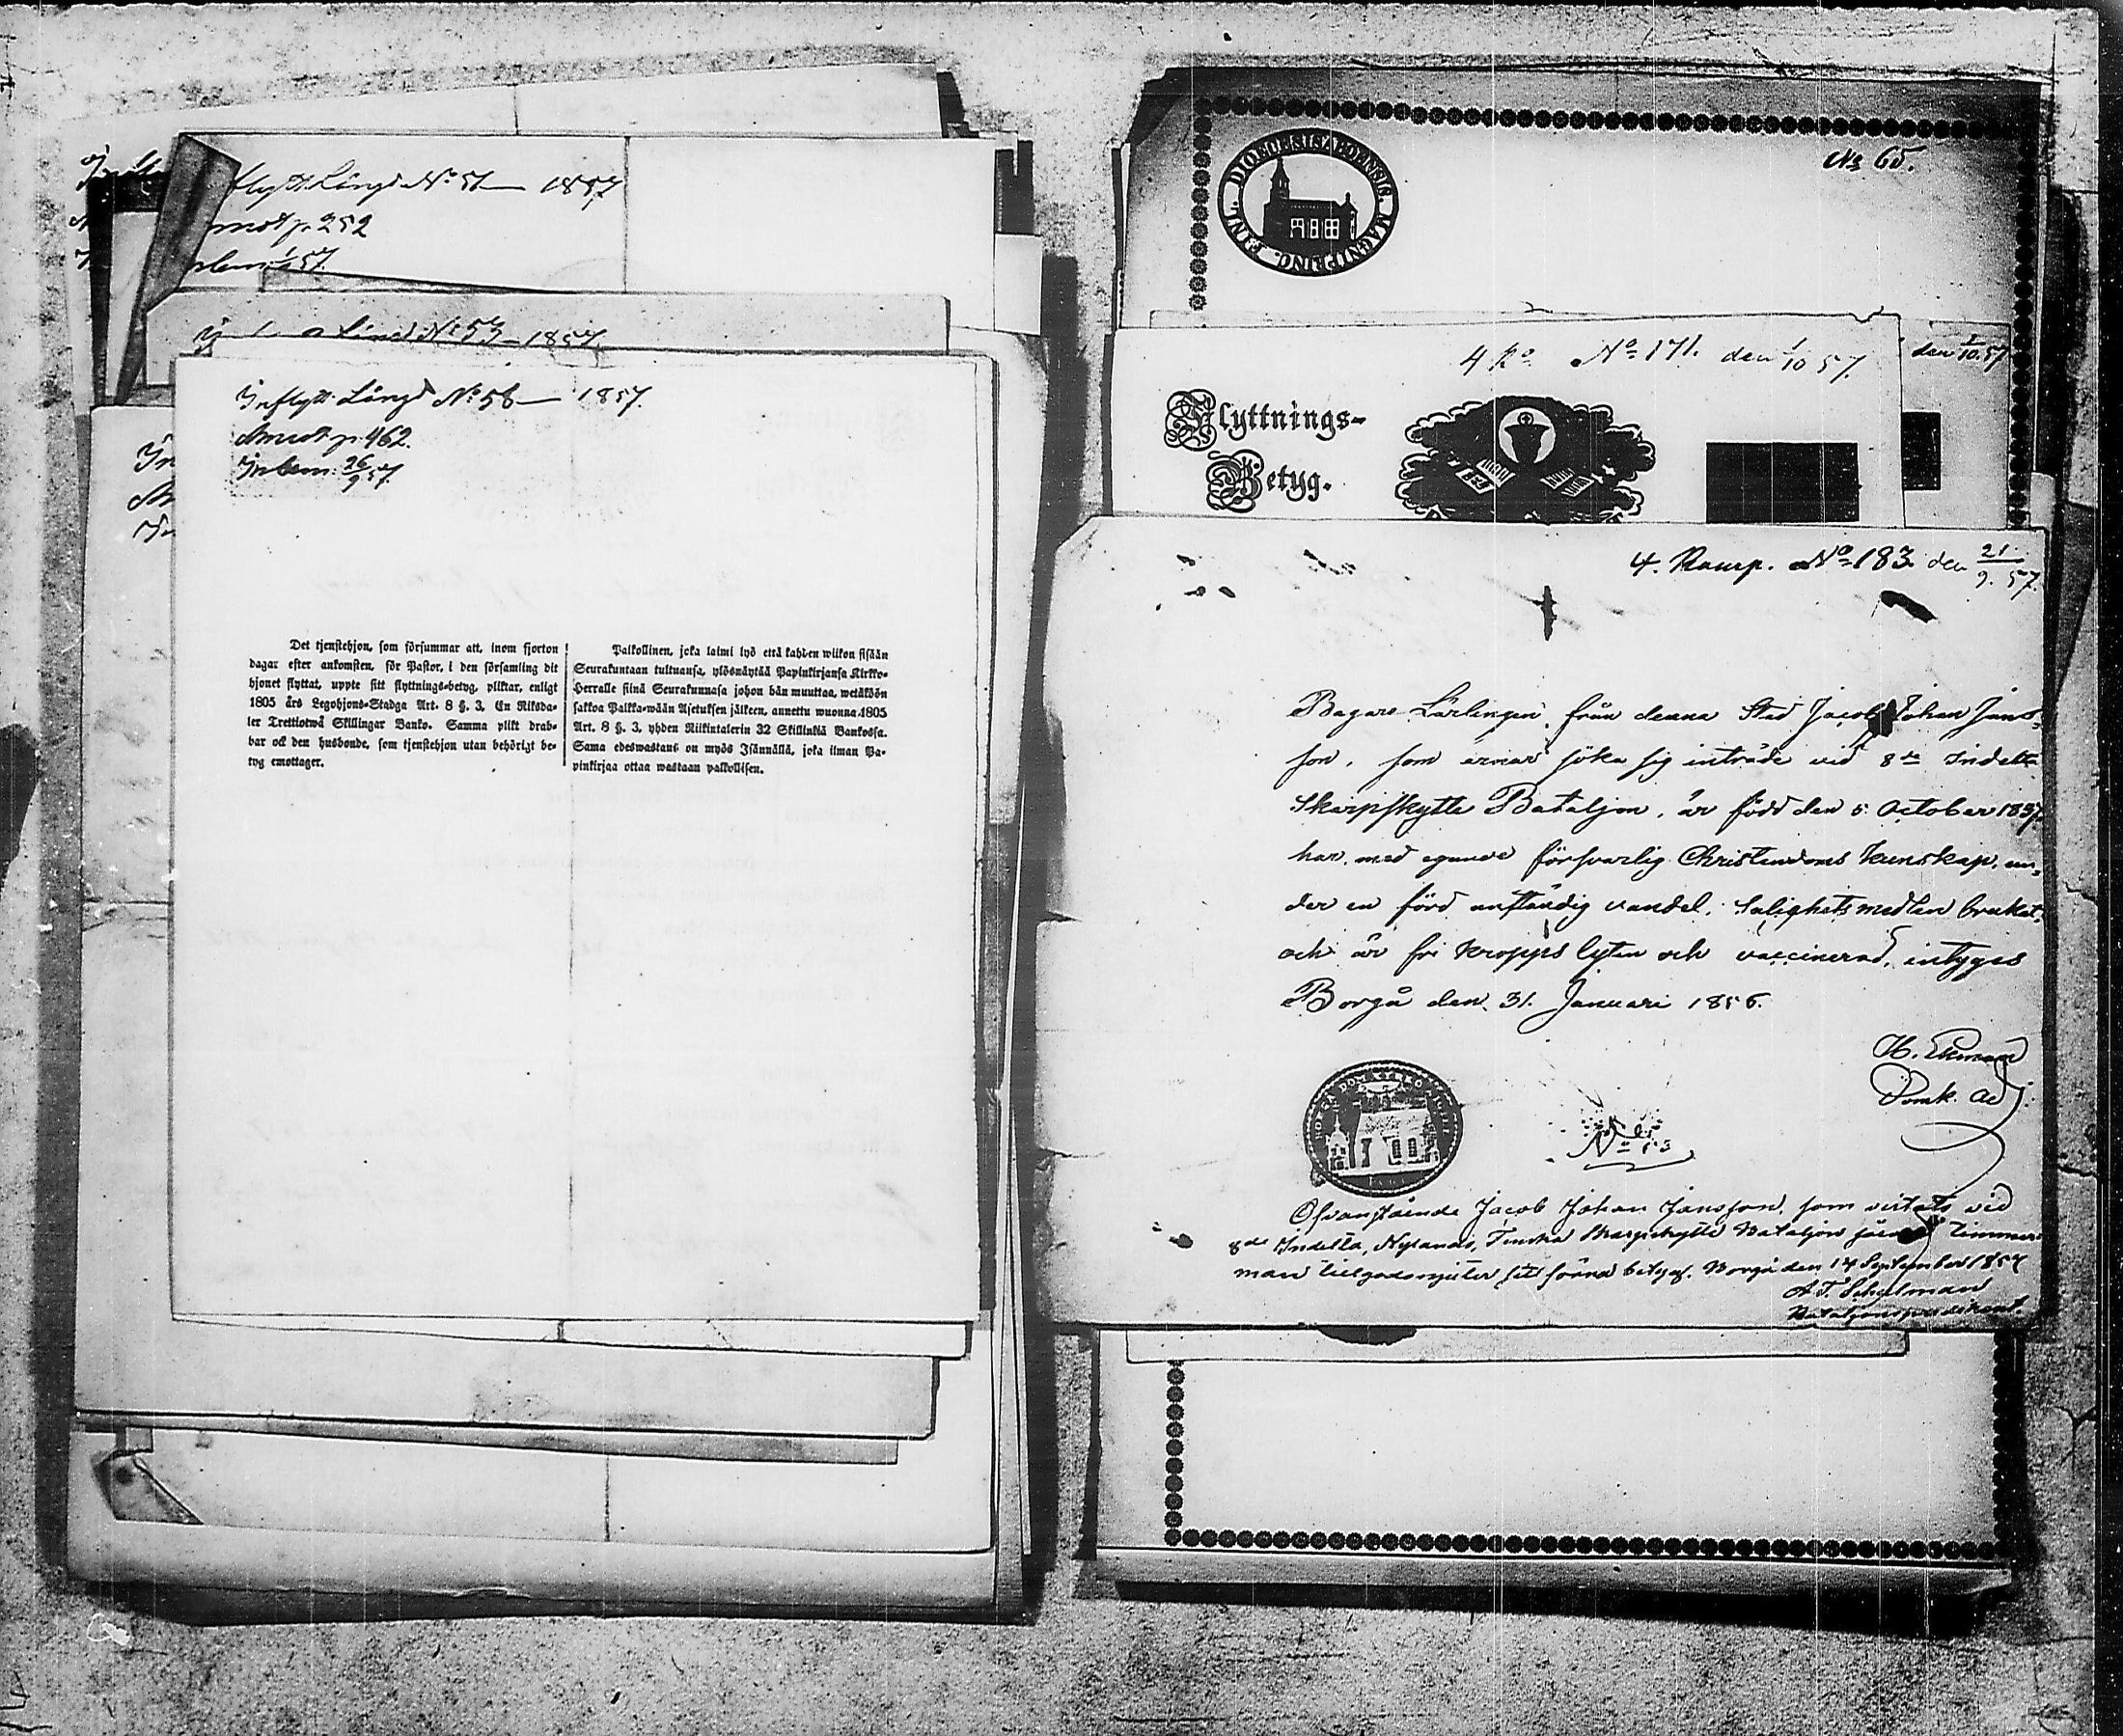 flytt Längd No 51 — 1857
annot p. 252
No 53 — 1857
Inflytt. Längd No 56 — 1857.
Annot p. 462.
Inlem. 26/9 57.
Det tjenstehjon, som försummar att, inom fjorton
dagar efter ankomsten, för Pastor, i den församling dit
hjonet flyttat, uppte sitt flyttnings-betyg, pliktar, enligt
1805 års Legohjons-Stadga Art. 8 §. 3, En Riksda-
ler Trettiotwå Skillingar Banko. Samma plikt drab-
bar ock den husbonde, som tjenstehjon utan behörigt be-
tyg emottager.
Palkollinen, joka laimi lyö että kahden wiikon sisään
Seurakuntaan tultuansa, ylösnäytää Papinkirjansa Kirkko-
Herralle siinä Seurakunnasa johon hän muuttaa, wetäköön
sakkoa Palkka-wään Asetuksen jälkeen, annettu wuonna 1805
Art. 8 §. 3, yhden Riikintalerin 32 Skillinkiä Bankossa.
Sama edeswastaus on myös Isännällä, joka ilman Pa-
pinkirjaa ottaa wastaan palkollisen.
No 65.
DIOECESIS ABOENSIS. MAGNI PRINC. FINL.
4 No 171. den 1/10 57.
den 1/10 57
Flyttnings-
Betyg.
4. Kamp. No 183. den 21/9. 57.
Bagare Lärlingen, från denna Stad Jacob Johan Jans-
son, som ärnar söka sig inträde vid 8de Indelta
Skarpskytte Bataljon, är född den 5 October 1837,
har, med egande försvarlig Christendoms kunskap, un-
der en förd anständig vandel, Salighetsmedlen brukat,
och är fri kropps lyten och vaccinerad, intygas
Borgå den 31. Januari 1856.
H. Ekman
Domk. Adj.
No 13
Ofvanstående Jacob Johan Jansson, som vistats vid
8de Indelta, Nylands, Finska Skarpskytte Bataljon såsom Timmer-
man tillgodonjuter sitt förra betyg. Borgå den 14 September 1857
A. F. Schulman
Bataljonspredikant.